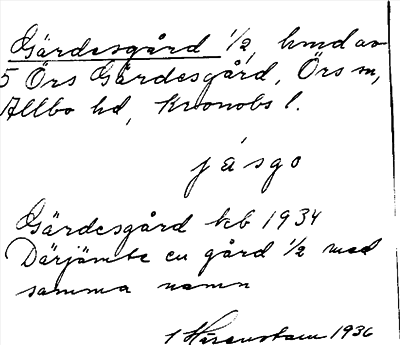 Gärdesgård 1/2, hmd av
5 Örs Gärdesgård, Örs sn,
Allbo hd, Kronobs l.
jásgo
Gärdesgård kb 1934
Därjämte en gård 1/2 med
samma namn
1936